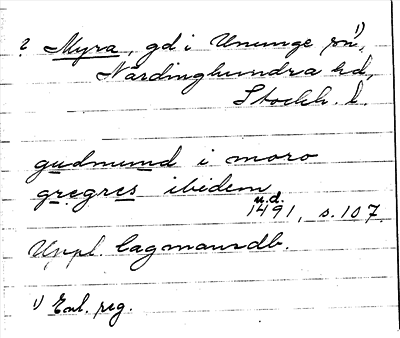 ? Myra, gd i Ununge sn, 1)
Närdinghundra hd,
Stockh. l.
gudmund i moro
gregres ibidem
u.d.
1491, s. 107.
Uppl. lagmansdb.
1) Enl. reg.